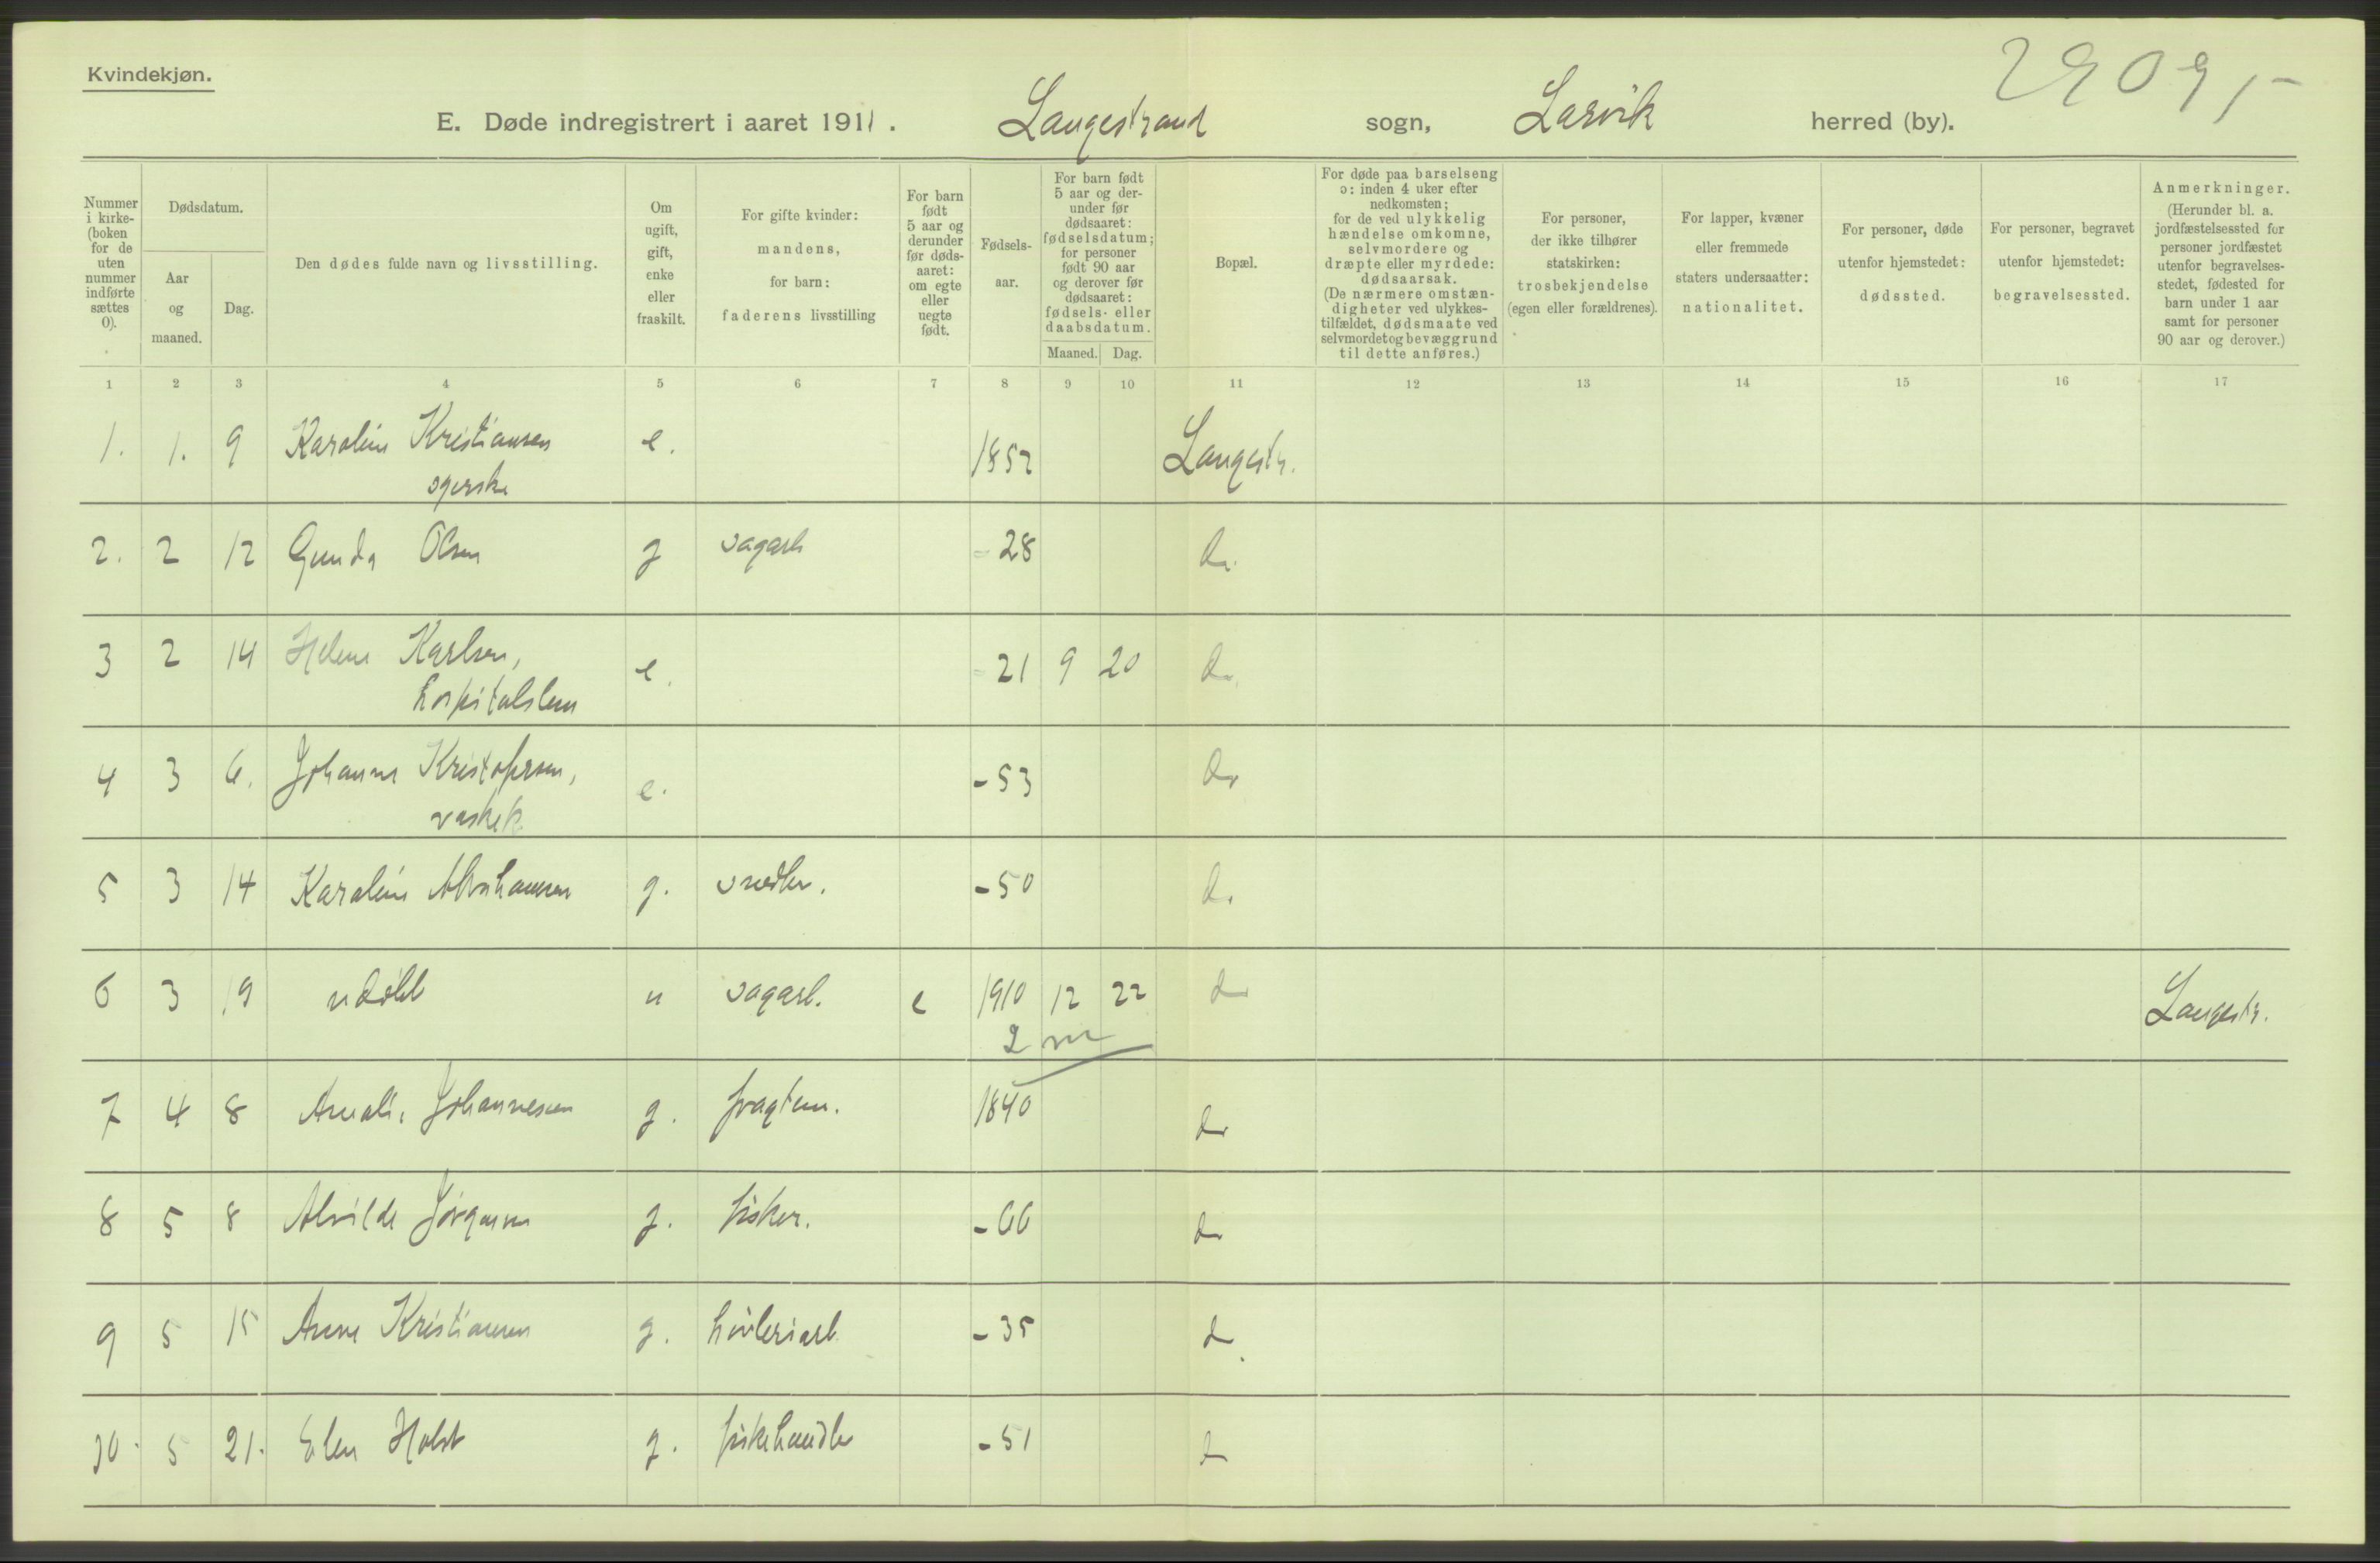 Kvindekjøn.
2909,-
E. Døde indregistrert i aaret 1911. Langestrand sogn, Larvik herred (by).
Nummer i kirke- (boken for de uten nummer indførte sættes 0).
Dødsdatum.
Aar og maaned.
Dag.
Den dødes fulde navn og livsstilling.
Om ugift, gift, enke eller fraskilt.
For gifte kvinder: mandens, for barn: faderens livsstilling
For barn født 5 aar og derunder før døds- aaret: om egte eller uegte født.
Fødsels- aar.
For barn født 5 aar og der- under før dødsaaret: fødselsdatum; for personer født 90 aar og derover før dødsaaret: fødsels- eller daabsdatum.
Maaned. Dag.
Bopæl.
For døde paa barselseng ɔ: inden 4 uker efter nedkomsten; for de ved ulykkelig hændelse omkomne, selvmordere og dræpte eller myrdede: dødsaarsak. (De nærmere omstæn- digheter ved ulykkes- tilfældet, dødsmaate ved selvmordet og bevæggrund til dette anføres.)
For personer, der ikke tilhører statskirken: trosbekjendelse (egen eller forældrenes).
For lapper, kvæner eller fremmede staters undersaatter: nationalitet.
For personer, døde utenfor hjemstedet: dødssted.
For personer, begravet utenfor hjemstedet: begravelsessted.
Anmerkninger. (Herunder bl. a. jordfæstelsessted for personer jordfæstet utenfor begravelses- stedet, fødested for barn under 1 aar samt for personer 90 aar og derover.)
1 2 3 4 5 6 7 8 9 10 11 12 13 14 15 16 17
1. 1. 9 Karoline Kristiansen e. 1852 Langestr.
syerske
2. 2 12 Gunda Olsen g sagarb - 28 do.
3 2 14 Helene Karlsen, e. - 21 9 20 do.
hospitalslem
4 3 6. Johanne Kristofersen, e. - 53 do
vaskek
5 3 14 Karoline Abrahamsen g. snedker. - 50 do
6 3 19 udøbt u sagarb. e 1910 12 22 do Langestr.
2 m
7 4 8 Amalie Johannesen g. fragtem. 1840 do
8 5 8 Alvilde Jørgensen g. fisker. - 66 do
9 5 15 Anne Kristiansen g. høvleriarb - 35 do.
10. 5 21. Elen Holst g. fiskehandler - 51 do